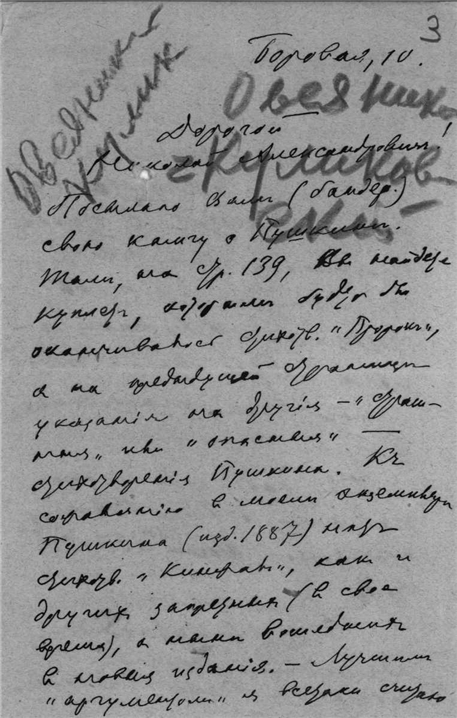 3
Боровая, 10.
Овсянико
Куликов
ский
Овсянико
Кулик
Дорогой
Николай Александрович!
Посылаю Вам (бандер.)
свою книгу о Пушкине.
Там, на стр. 139, Вы найдете
куплет, которым будто бы
оканчивалось стихотв. "Пророк",
а на предыдущей странице
указания на другія — "страш-
ныя" или "опасныя" —
стихотворенія Пушкина. Къ
сожалению в моем экземпляре
Пушкина (изд. 1887) нет
стихотв. "Кинжал", как и
других запретных (в свое
время), а ныне вошедших
в новыя изданія. — Лучшим
"аргументом" я всетаки считаю